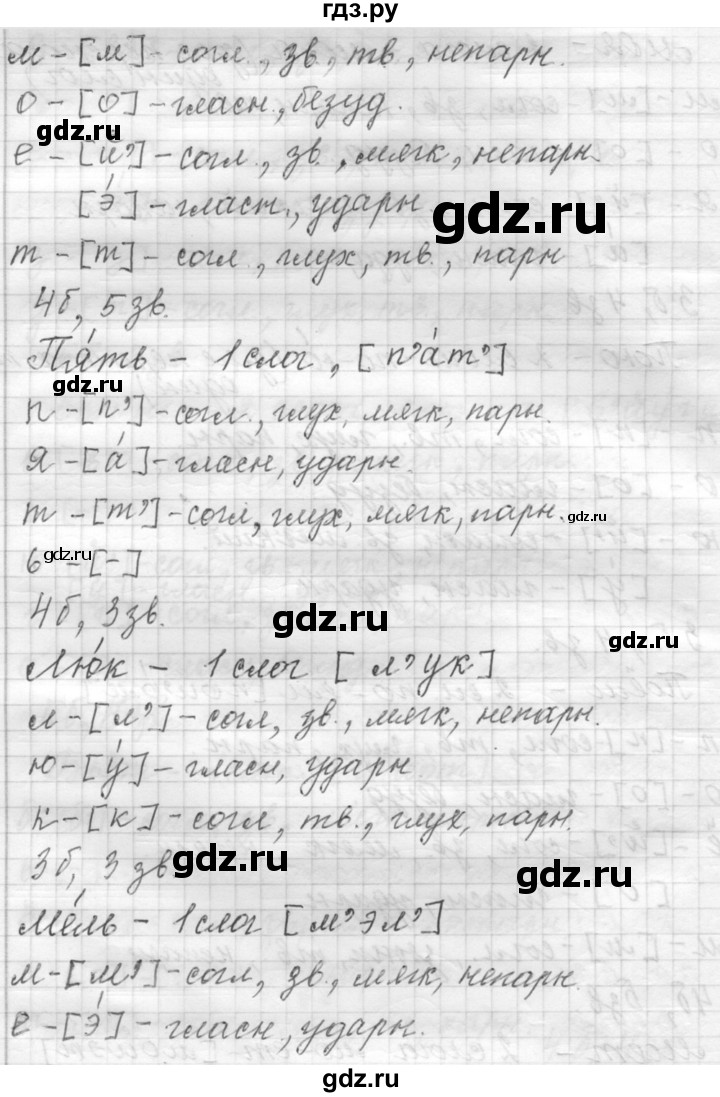 гдз.ру
м - [м] - согл., зв., тв., непарн.
о - [о] - гласн., безуд.
gdz.ru
е - [й'] - согл., зв., мягк, непарн.
[э́] - гласн., ударн
gdz.ru
т - [т] - согл., глух, тв., парн
4б, 5 зв.
Пя́ть - 1 слог, [п'а́т']
gdz.ru
п - [п'] - согл., глух, мягк, парн.
я - [а́] - гласн, ударн.
т - [т'] - согл, глух, мягк, парн.
gdz.ru
gdz.ru
ь - [-]
4б, 3 зв.
gdz.ru
gdz.ru
Лю́к - 1 слог [л'ук]
л - [л'] - согл, зв., мягк, непарн.
ю - [у́] - гласн, ударн
к - [к] - согл, тв., глух, парн.
3б, 3 зв
gdz.ru
gdz.ru
Ме́ль - 1 слог [м'эл']
м - [м'] - согл, зв, мягк, непарн.
е - [э́] - гласн, ударн.
gdz.ru